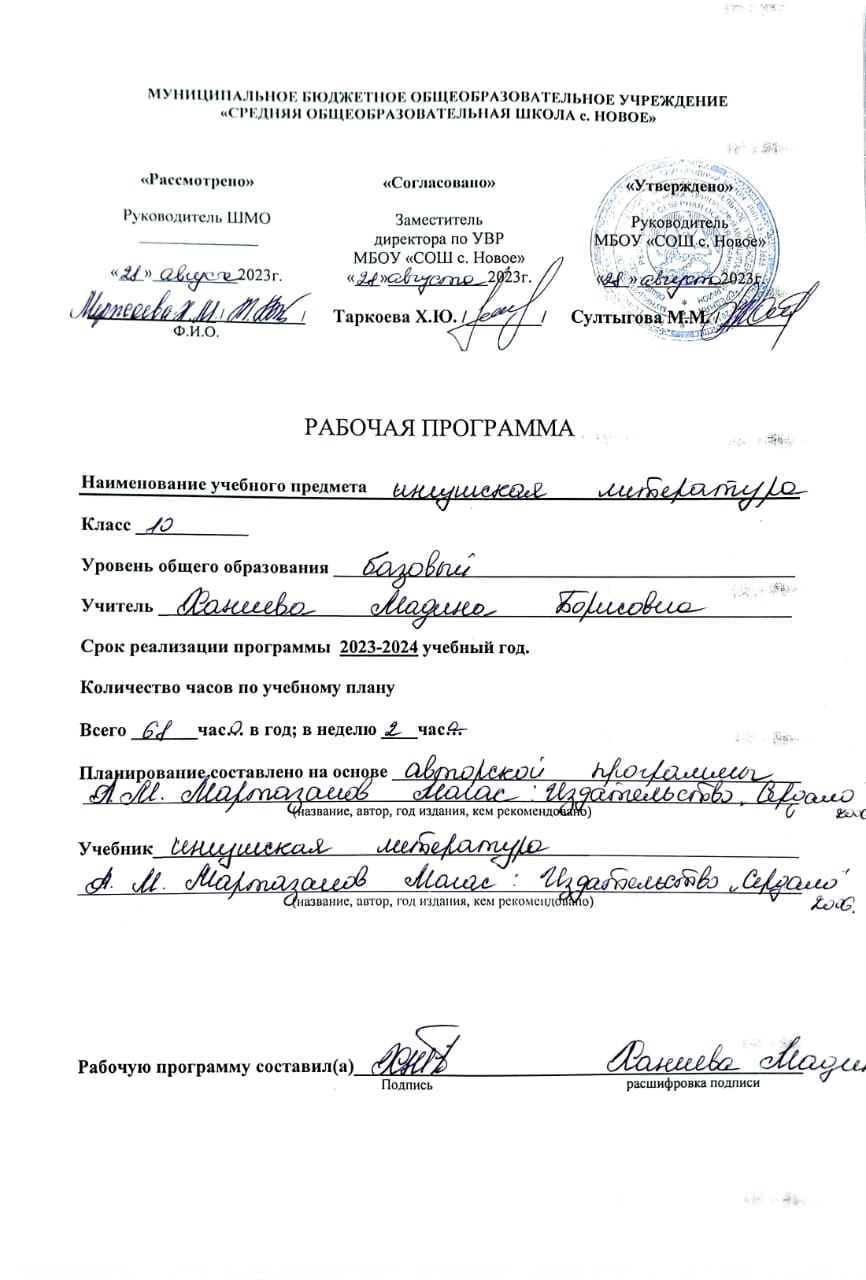 МУНИЦИПАЛЬНОЕ БЮДЖЕТНОЕ ОБЩЕОБРАЗОВАТЕЛЬНОЕ УЧРЕЖДЕНИЕ
«СРЕДНЯЯ ОБЩЕОБРАЗОВАТЕЛЬНАЯ ШКОЛА с. НОВОЕ»
«Рассмотрено»
Руководитель ШМО
«28» августа 2023г.
Ф.И.О.
«Согласовано»
Заместитель
директора по УВР
МБОУ «СОШ с. Новое»
«28» августа 2023г.
Таркоева Х.Ю. / /
«Утверждено»
Руководитель
МБОУ «СОШ с. Новое»
«28» августа 2023г.
Султыгова М.М. /
РАБОЧАЯ ПРОГРАММА
Наименование учебного предмета ингушская литература
Класс 10
Уровень общего образования базовый
Учитель Ханиева Мадина Борисовна
Срок реализации программы 2023-2024 учебный год.
Количество часов по учебному плану
Всего 68 час.о. в год; в неделю 2 час.а.
Планирование составлено на основе авторской программы
А. М. Мартазанов Магас: Издательство „Сердало
(название, автор, год издания, кем рекомендовано)
Учебник ингушская литература
А. М. Мартазанов Магас: Издательство „Сердало"
2006.
(название, автор, год издания, кем рекомендовано)
Рабочую программу составил(а) Ханиева
Подпись
расшифровка подписи